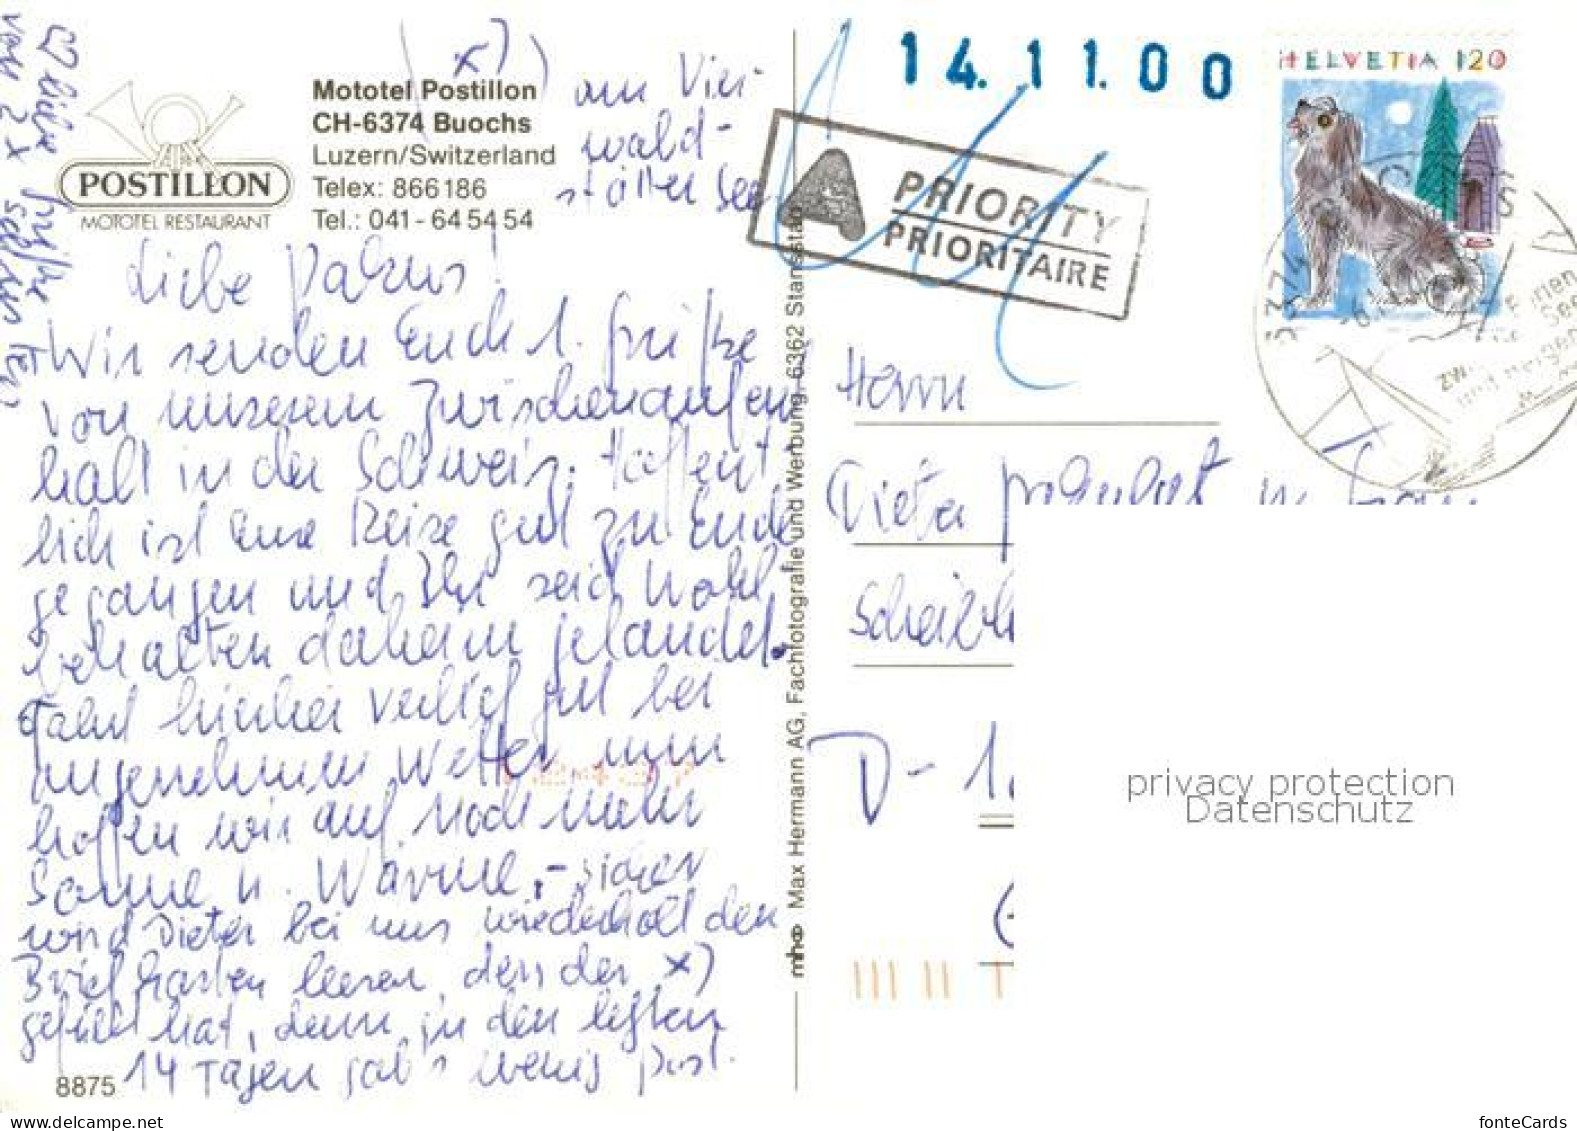 x)
Mototel Postillon
CH-6374 Buochs
Luzern/Switzerland
Telex: 866186
Tel.: 041-64 54 54
POSTILLON
MOTOTEL RESTAURANT
am Vier-
wald-
stätter See
14.11.00
A PRIORITY
PRIORITAIRE
HELVETIA 120
Liebe
Wir senden Euch l. Grüße
von unserem Zwischenaufent
halt in der Schweiz. Hoffent-
lich ist Eure Reise gut zu Ende
gegangen und Ihr seid wohl
behalten daheim gelandet.
Fahrt hierher verlief gut bei
angenehmem Wetter nun
hoffen wir auf noch mehr
Sonne u. Wärme, - sicher
wird Dieter bei uns wiederholt den
Briefkasten leeren, den der x)
gefüllt hat, denn in den letzten
14 Tagen gab's wenig Post.
8875
liebe Grüße
von 2 x
mhw Max Hermann AG, Fachfotografie und Werbung, 6362 Stansstad
Herrn
Dieter
D-1
privacy protection
Datenschutz
www.delcampe.net
fonteCards